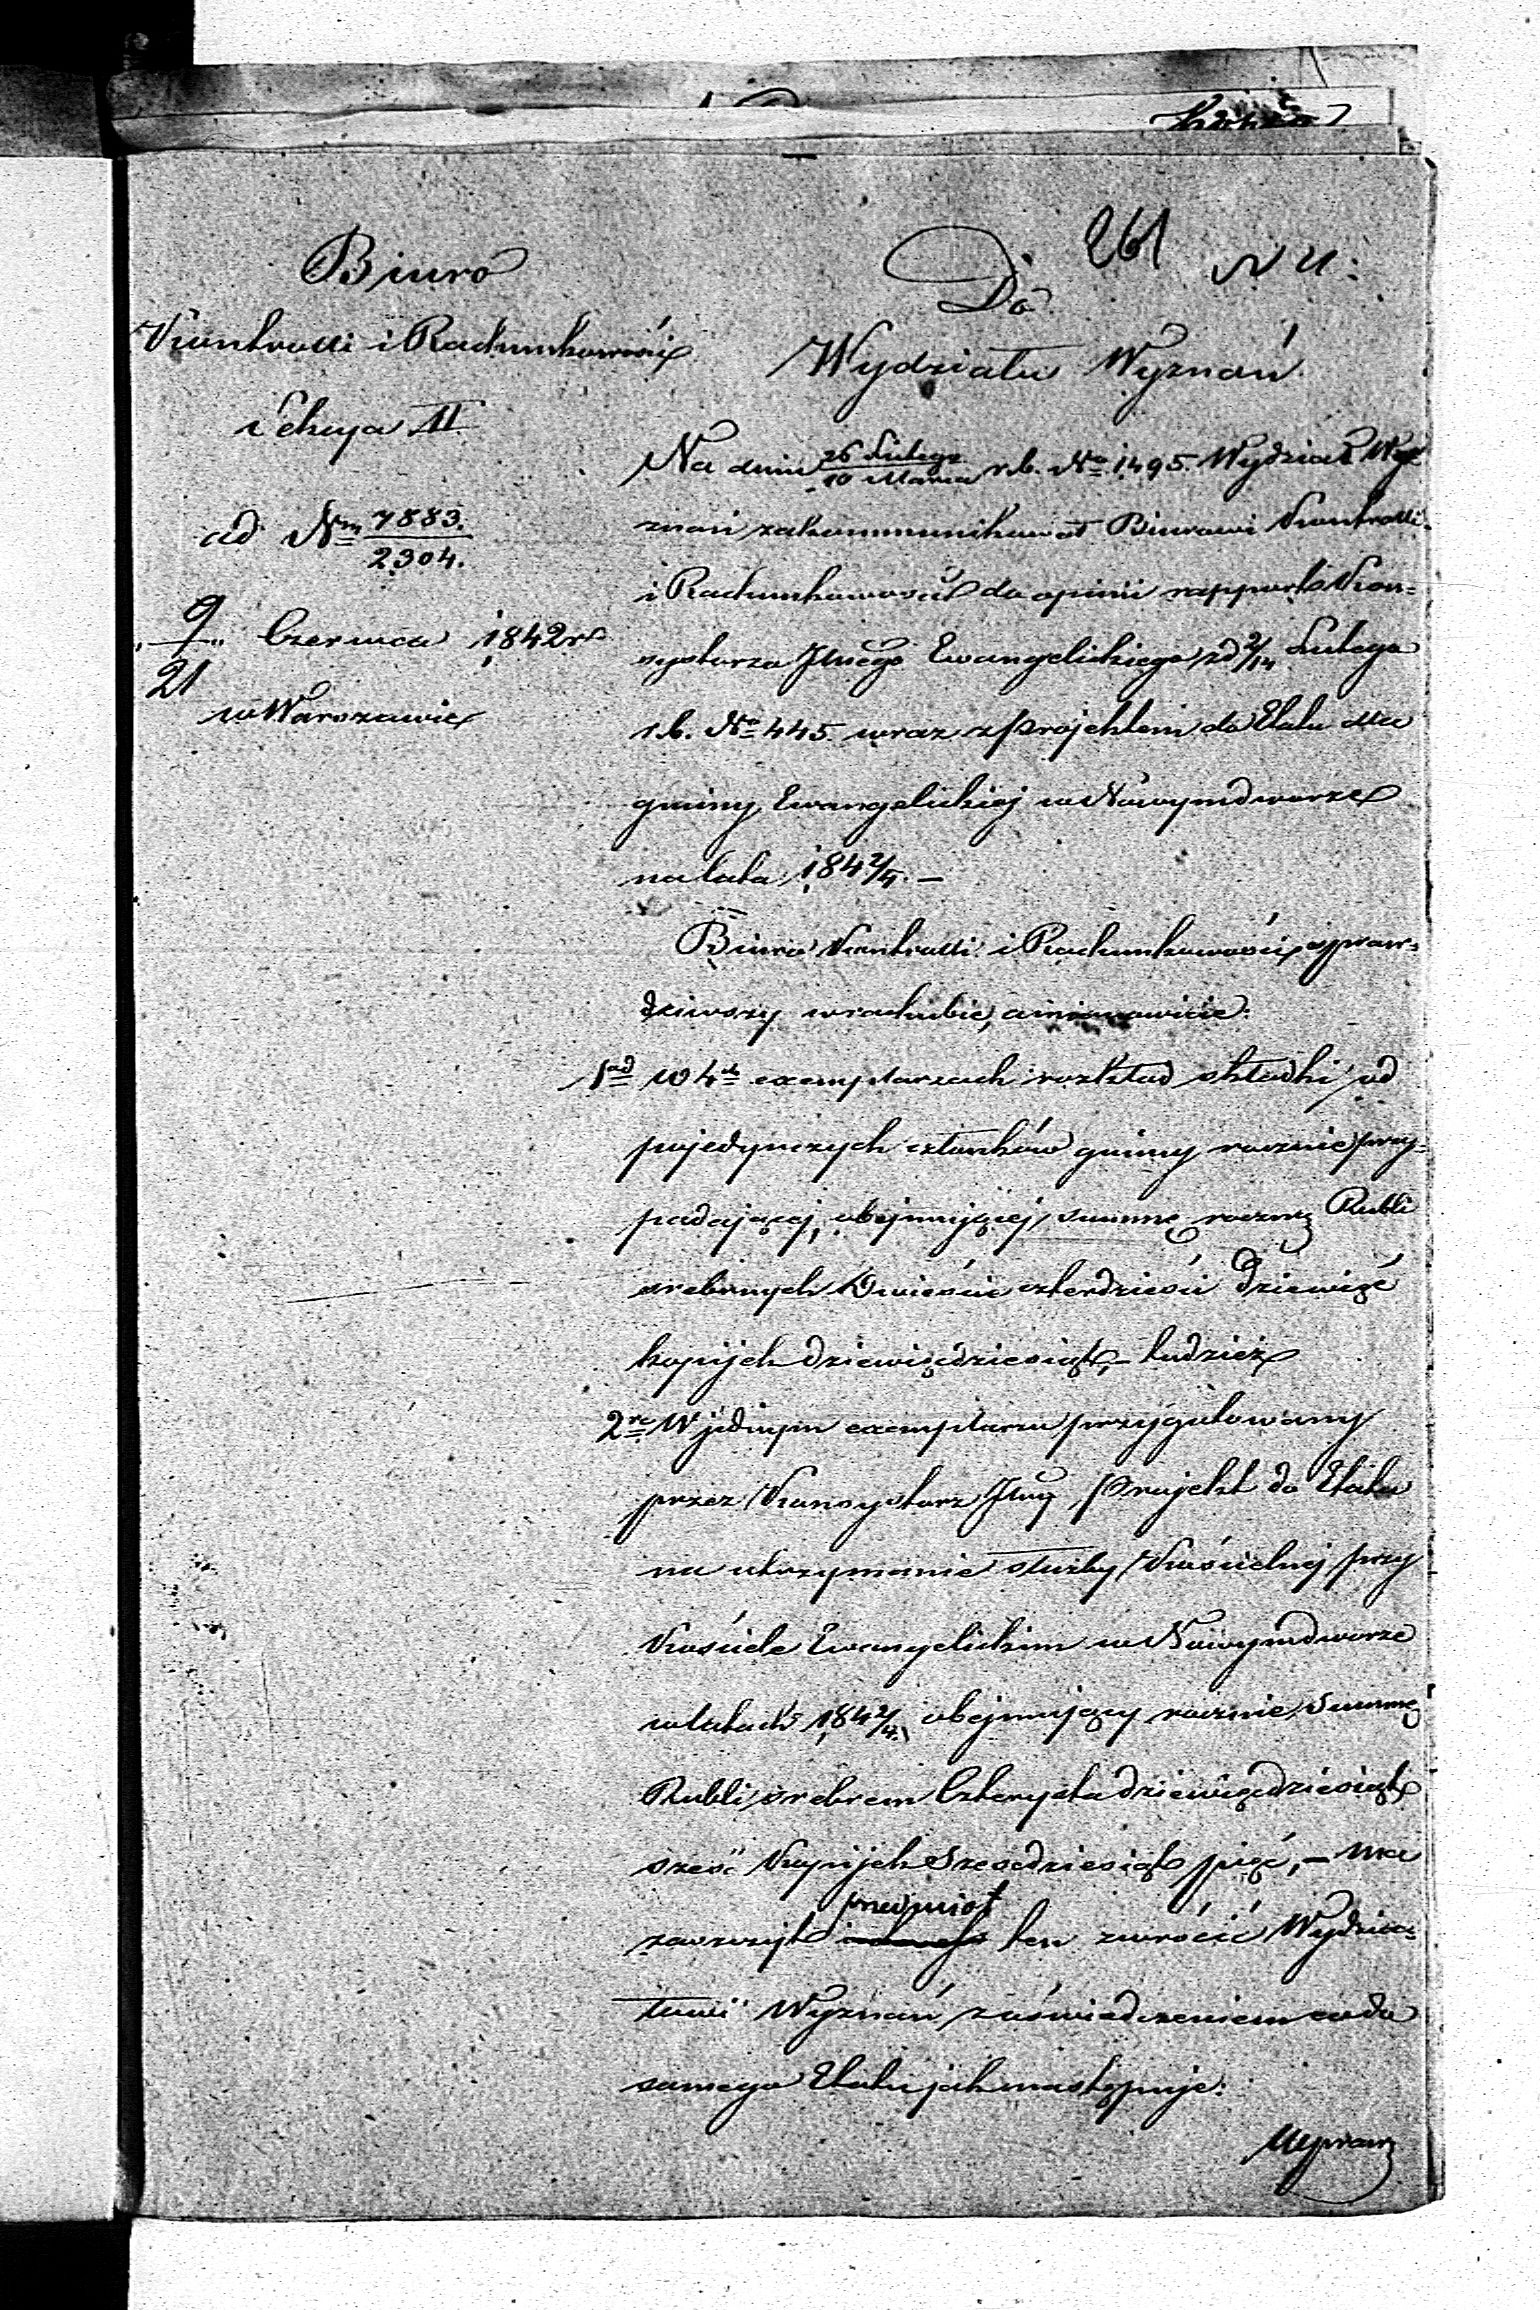 261 N 11.
Biuro
Kontrolli i Rachunkowości
Sekcya II.
ad Nrm 7883.
2304.
9/21 Czerwca 1842 r.
w Warszawie
Do
Wydziału Wyznań
Na dniu 26 Lutego/10 Marca r.b. No 1495. Wydział Wy=
znań zakommunikował Biurowi Kontrolli
i Rachunkowości do opinii rapport Kon=
systorza Jlnego Ewangelickiego z d 2/14 Lutego
r.b. No 445. wraz z Projektem do Etatu dla
gminy Ewangelickiej w Nowymdworze
na lata 1842/4. —
Biuro Kontrolli i Rachunkowości spraw=
dziwszy w rachubie, a mianowicie:
1od w 4ch exemplarzach rozkład składki od
pojedynczych członków gminy rocznie przy=
padającej, obejmującej summę roczną Rubli
srebrnych Dwieście czterdzieści Dziewięć
kopijek dziewięćdziesiąt, — tudzież
2re W jednym exemplarzu przygotowany
przez Konsystorz Jlny Projekt do Etatu
na utrzymanie służby Kościelnej przy
Kościele Ewangelickim w Nowymdworze
w latach 1842/4. obejmujący rocznie Summę
Rubli srebrem Czterysta dziewięćdziesiąt
sześć Kopijek Sześćdziesiąt pięć, — ma
zaszczyt przedmiot ten zwrócić Wydzia=
łowi Wyznań z oświadczeniem co do
samego Etatu jak następuje:
Wypraw